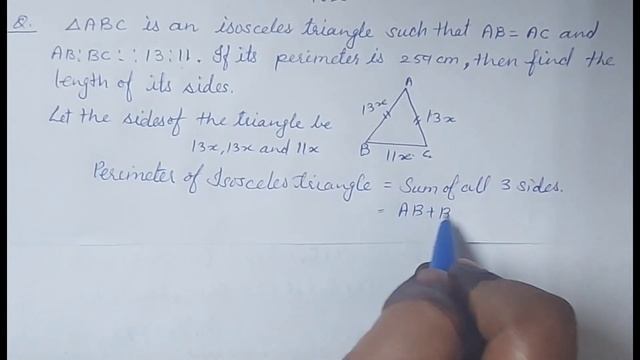 Q. △ABC is an isosceles triangle such that AB = AC and
AB : BC : : 13 : 11. If its perimeter is 259 cm, then find the
length of its sides.
Let the sides of the triangle be
13x, 13x and 11x
A
13x
13x
B
11x
C
Perimeter of Isosceles triangle = Sum of all 3 sides.
= AB + B